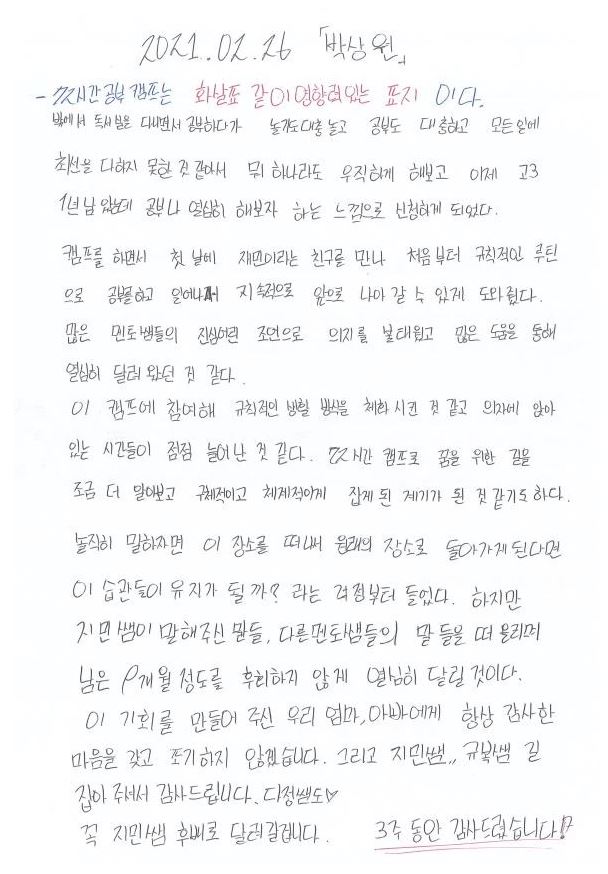 2021.02.26 「박상원」
- 72시간공부캠프는 화살표 같이 영향력있는 표지 이다.
밖에서 독서실을 다니면서 공부하다가 놀기도대충놀고 공부도 대충하고 모든일에
최선을 다하지 못한 것 같아서 뭐 하나라도 우직하게 해보고 이제 고3
1년 남았는데 공부나 열심히 해보자 하는 느낌으로 신청하게 되었다.
캠프를 하면서 첫 날에 재민이라는 친구를 만나 처음부터 규칙적인 루틴
으로 공부를하고 일어나서 지속적으로 앞으로 나아 갈 수 있게 도와줬다.
많은 멘토쌤들의 진심어린 조언으로 의지를 불태웠고 많은 도움을 통해
열심히 달려 왔던 것 같다.
이 캠프에 참여해 규칙적인 생활 방식을 체화 시킨 것 같고 의자에 앉아
있는 시간들이 점점 늘어난 것 같다. 72시간 캠프로 꿈을 위한 길을
조금 더 알아보고 구체적이고 체계적이게 잡게 된 계기가 된 것 같기도 하다.
솔직히 말하자면 이 장소를 떠나서 원래의 장소로 돌아가게 된다면
이 습관들이 유지가 될까? 라는 걱정부터 들었다. 하지만
지민쌤이 말해주신 말들, 다른멘토쌤들의 말들을 떠올리며
남은 9개월 정도를 후회하지 않게 열심히 달릴 것이다.
이 기회를 만들어 주신 우리 엄마, 아빠에게 항상 감사한
마음을 갖고 포기하지 않겠습니다. 그리고 지민쌤,, 규복쌤 길
잡아 주셔서 감사드립니다. 다정쌤도♡
꼭 지민쌤 후배로 달려갈겁니다. 3주 동안 감사드렸습니다!